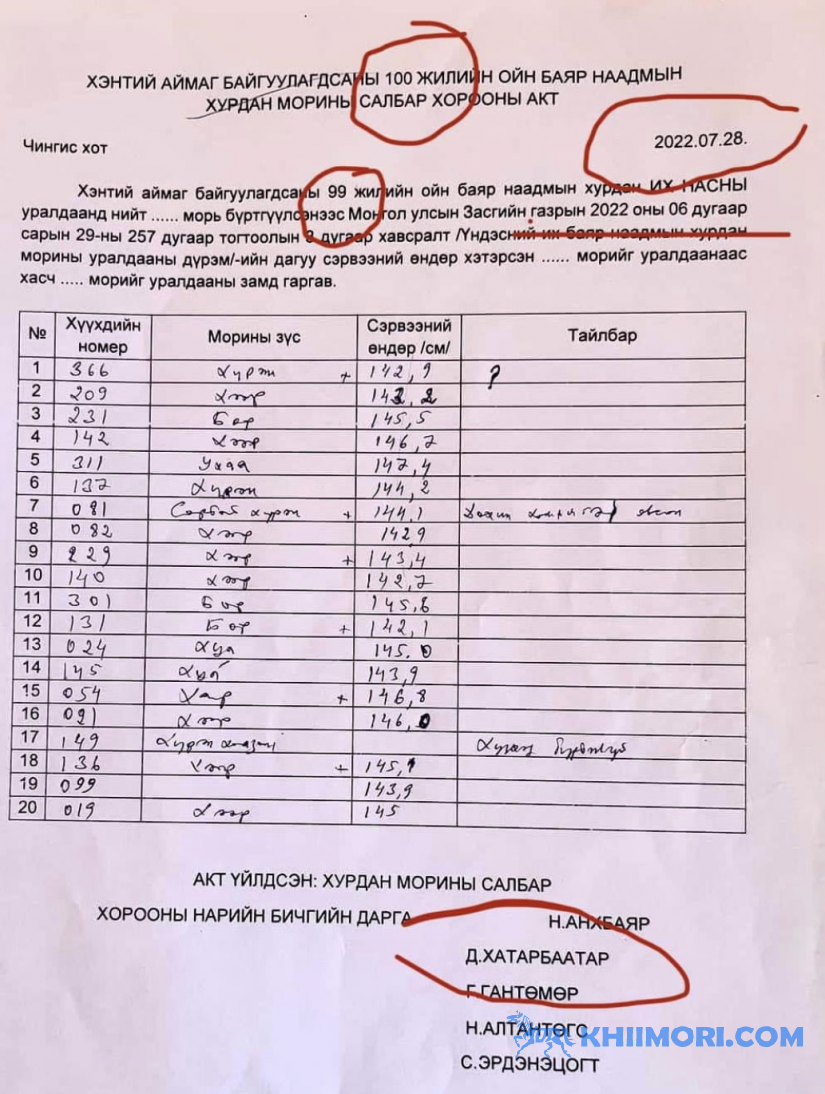 ХЭНТИЙ АЙМАГ БАЙГУУЛАГДСАНЫ 100 ЖИЛИЙН ОЙН БАЯР НААДМЫН
ХУРДАН МОРИНЫ САЛБАР ХОРООНЫ АКТ
Чингис хот 2022.07.28.
Хэнтий аймаг байгуулагдсаны 99 жилийн ойн баяр наадмын хурдан ИХ НАСНЫ
уралдаанд нийт ...... морь бүртгүүлсэнээс Монгол улсын Засгийн газрын 2022 оны 06 дугаар
сарын 29-ны 257 дугаар тогтоолын 3 дугаар хавсралт /Үндэсний их баяр наадмын хурдан
морины уралдааны дүрэм/-ийн дагуу сэрвээний өндөр хэтэрсэн ...... морийг уралдаанаас
хасч ..... морийг уралдааны замд гаргав.
№ Хүүхдийн номер Морины зүс Сэрвээний өндөр /см/ Тайлбар
1 366 + 142,9 ?
2 209 Хээр
3 231 Бор 145,5
4 142 Хээр 146,7
5 311 Ухаа 147,4
6 137 Хүрэн 144,2
7 081 хүрэн + 144,1
8 082 Хээр 1429
9 229 Хээр + 143,4
10 140 Хээр 142,7
11 301 Бор 145,6
12 131 Бор + 142,1
13 024 Хуа 145.0
14 145 143,9
15 054 Хар + 146,8
16 021 Хээр 146,0
17 149
18 136 Хээр + 145,9
19 099 143,9
20 019 Хээр 145
АКТ ҮЙЛДСЭН: ХУРДАН МОРИНЫ САЛБАР
ХОРООНЫ НАРИЙН БИЧГИЙН ДАРГА Н.АНХБАЯР
Д.ХАТАРБААТАР
Г.ГАНТӨМӨР
Н.АЛТАНТӨГС
С.ЭРДЭНЭЦОГТ
KHIIMORI.COM